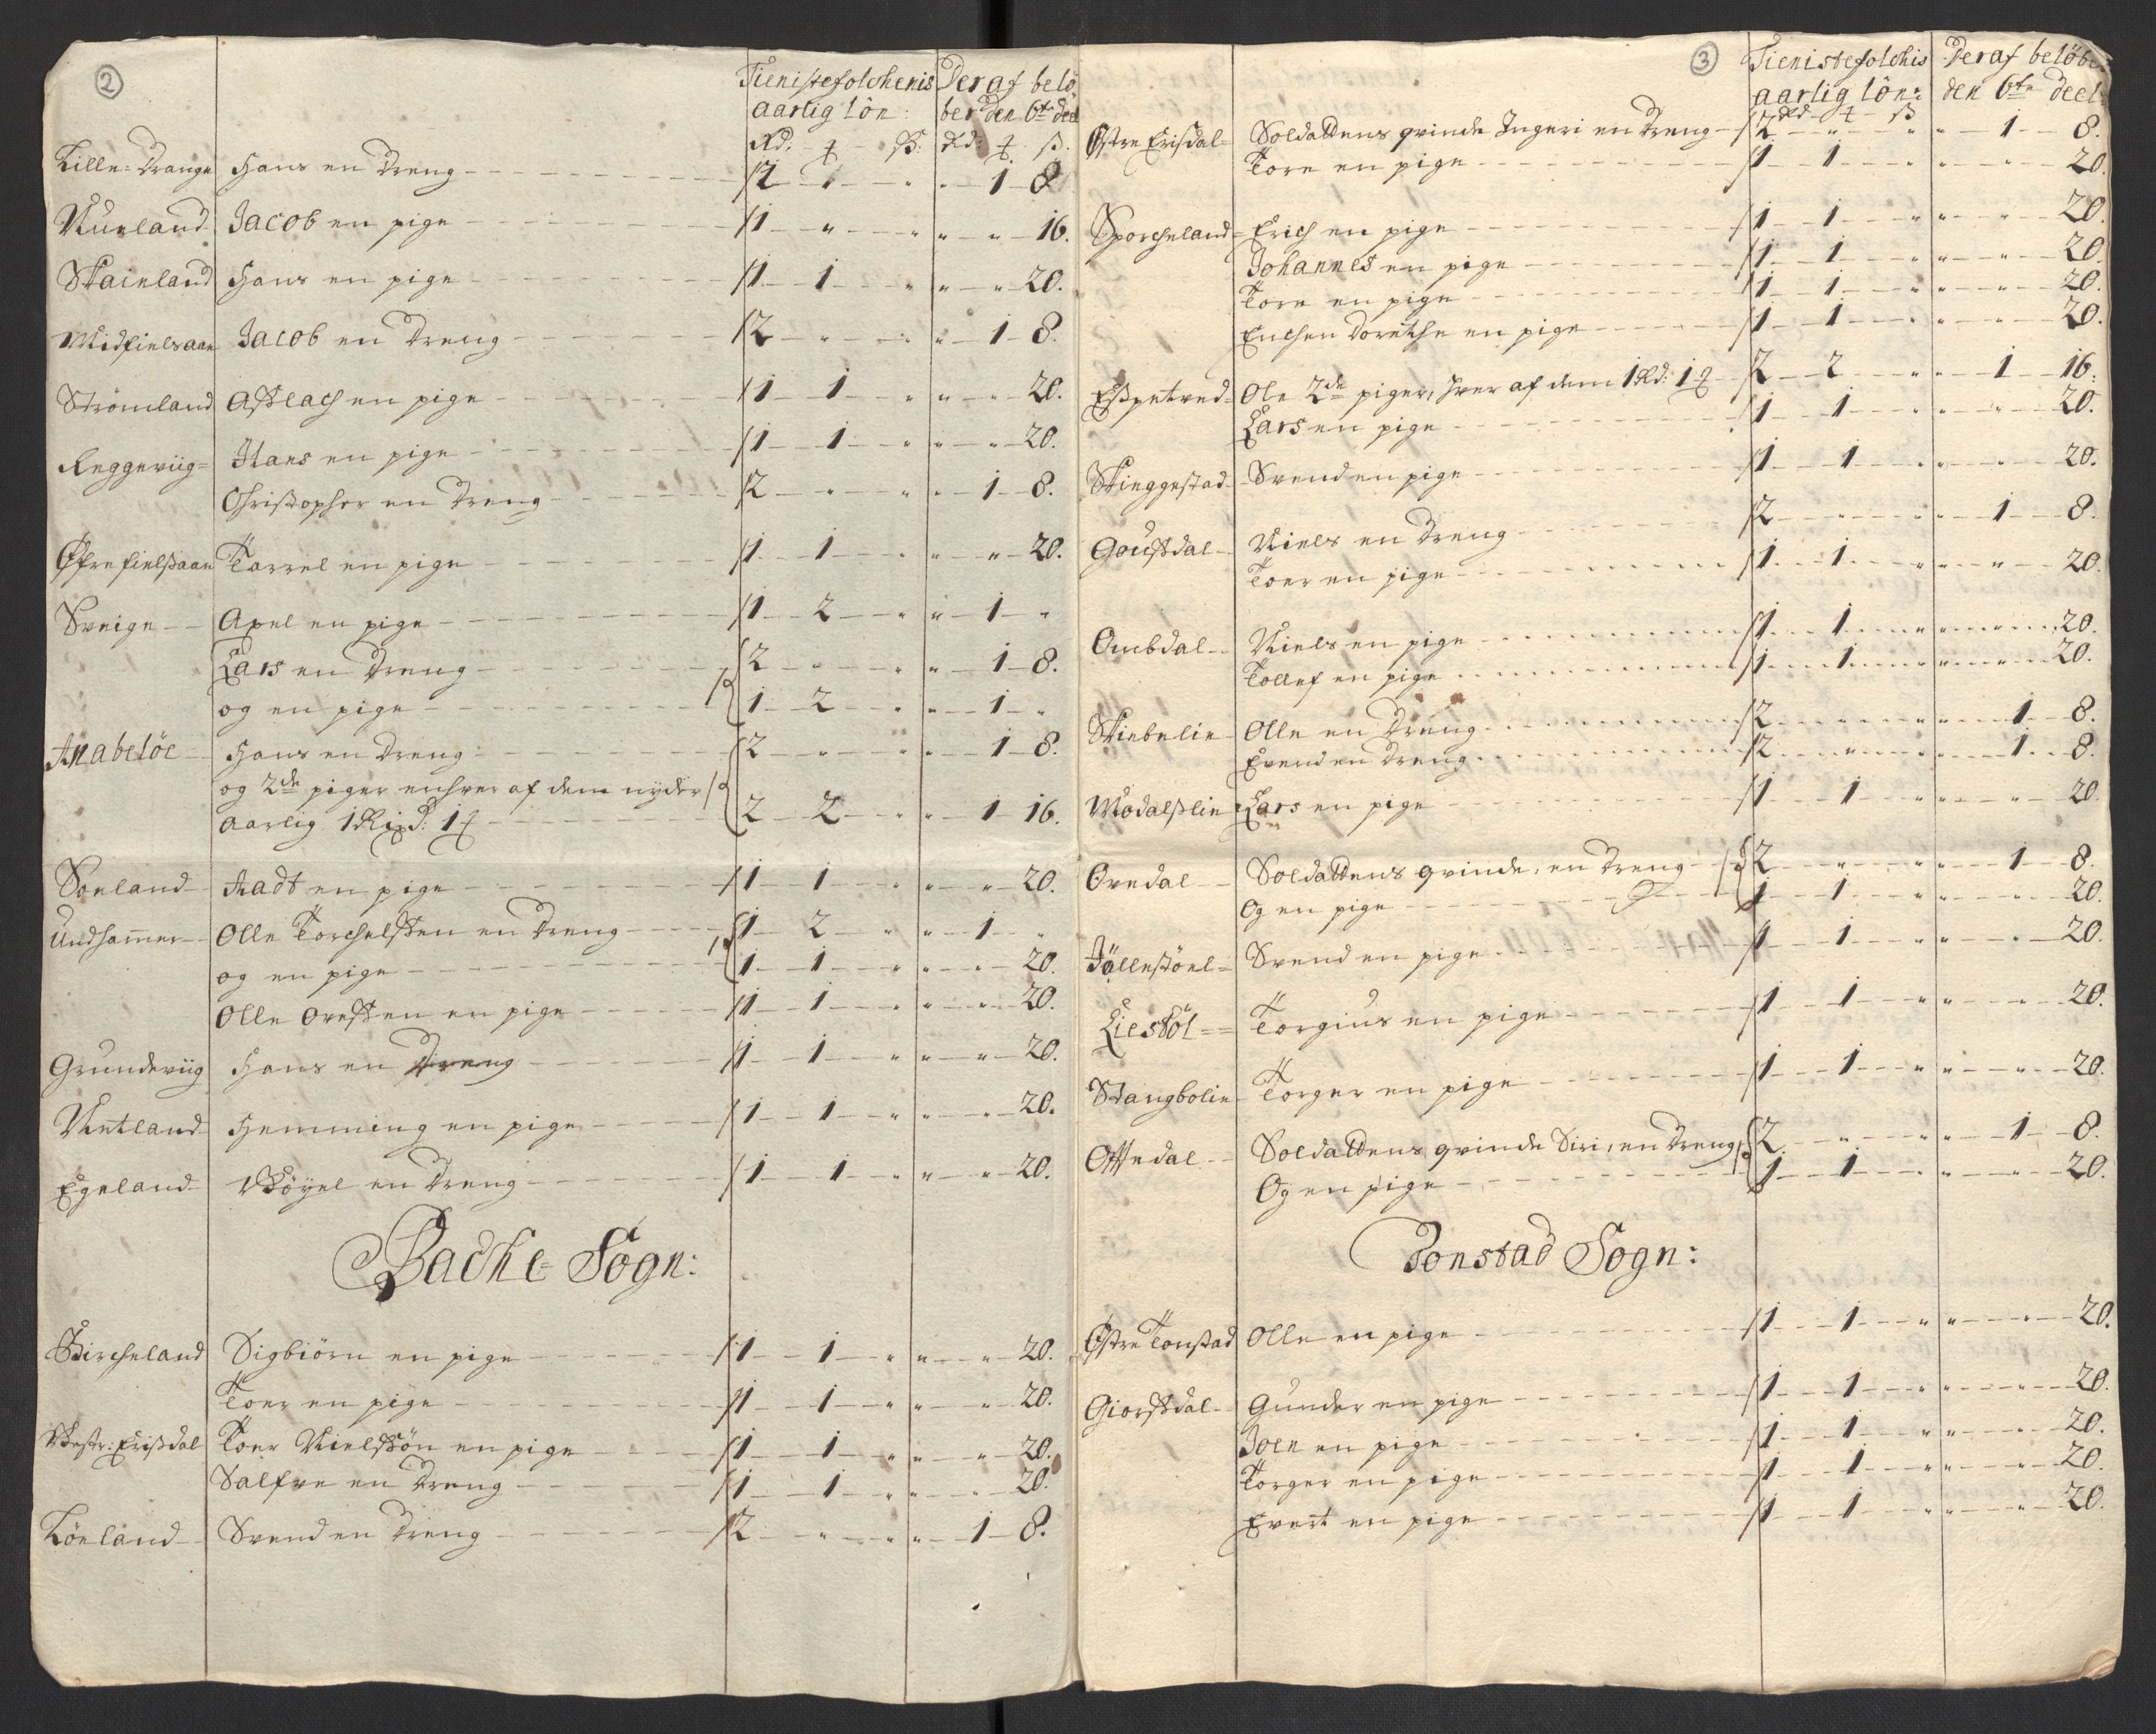 2
Tienistefolchenis Deraf belö
aarlig lön: ber den 6te deel
Rd. ƒ ß: Rd: ƒ. ß.
Lille: Drange Hans en dreng 2 " " " 1 8
Nueland Jacob en pige 1 " " " " 16.
Staineland Hans en pige 1 1 " " " 20.
Midfielsaae Jacob en dreng 2 " " " 1 8.
Strömland Asslach en pige 1 1 " " " 20.
Reggeviig Hans en pige 1 1 " " " 20.
Christopher en dreng 2 " " " 1 8.
Øfre fielßaae Tarrel en pige 1 1 " " " 20.
Sveige Axel en pige 1 2 " " 1 "
Lars en dreng 2 " " " 1 8.
og en pige 1 2 " " 1 "
Anabelöe Hans en dreng 2 " " " 1 8.
og 2de piger enhver af dem nyder
aarlig 1 Rixd: 1 ƒ 2 2 " " 1 16.
Soeland Aadt en pige 1 1 " " " 20.
Undhamer Olle Torchelssen en dreng 1 2 " " 1 "
og en pige 1 1 " " " 20.
Olle Ovessen en pige 1 1 " " " 20.
Grundeviig Hans en dreng 1 1 " " " 20.
Netland Hemming en pige 1 1 " " " 20.
Egeland Böyel en dreng 1 1 " " " 20.
Bache Sogn:
Bircheland Sigbiörn en pige 1 1 " " " 20.
Toer en pige 1 1 " " " 20.
Vestr: Erisdal Toer Nielssön en pige 1 1 " " " 20.
Salfve en dreng 1 1 " " " 20.
Löeland Svend en dreng 2 " " " 1 8.
3
Tienistefolchis Deraf belöber
aarlig lön: den 6te deel
Rd ƒ ß
Østre Erisdal Soldattens qvinde Ingeri en dreng 2 " " " 1 8.
Tore en pige 1 1 " " " 20.
Sporcheland Erich en pige 1 1 " " " 20.
Johannes en pige 1 1 " " " 20.
Tore en pige 1 1 " " " 20.
Enchen Dorethe en pige 1 1 " " " 20.
Eßpetved Ole 2de piger, hver af dem 1 Rd: 1 ƒ 2 2 " " 1 16.
Lars en pige 1 1 " " " 20.
Stieggestad Svend en pige 1 1 " " " 20.
Goussdal Niels en dreng 2 " " " 1 8.
Toer en pige 1 1 " " " 20.
Ombdal Niels en pige 1 1 " " " 20.
Tollef en pige 1 1 " " " 20.
Stiebelie Olle en dreng 2 " " " 1 8.
Evend en dreng 2 " " " 1 8.
Modalßlie Lars en pige 1 1 " " " 20
Ovedal Soldattens qvinde, en dreng 2 " " " 1 8.
Og en pige 1 1 " " " 20.
Jöllestöel Svend en pige 1 1 " " " 20.
Liestöl Torgius en pige 1 1 " " " 20.
Stangbolie Torger en pige 1 1 " " " 20.
Offedal Soldattens qvinde Siri, en dreng 2 " " " 1 8.
Og en pige 1 1 " " " 20.
Tonstad Sogn:
Østre Tonstad Olle en pige 1 1 " " " 20.
Giorssdal Gunder en pige 1 1 " " " 20.
Joen en pige 1 1 " " " 20.
Torger en pige 1 1 " " " 20.
Evert en pige 1 1 " " " 20.